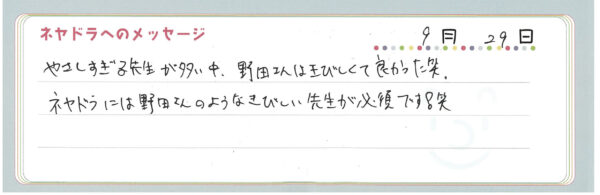 ネヤドラへのメッセージ
9月 29日
やさしすぎる先生が多い中、野田さんはきびしくて良かった笑。
ネヤドラには野田さんのようなきびしい先生が必須です笑